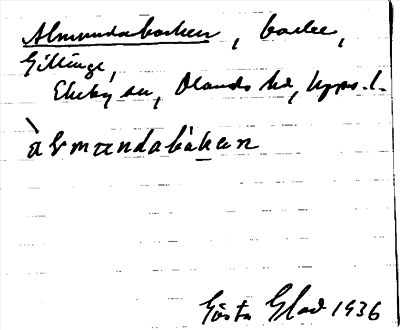 Almundabacken, backe,
Gillinge,
Ekeby sn, Olands hd, Upps. l.
àlmundabàkan
Gösta Glad 1936